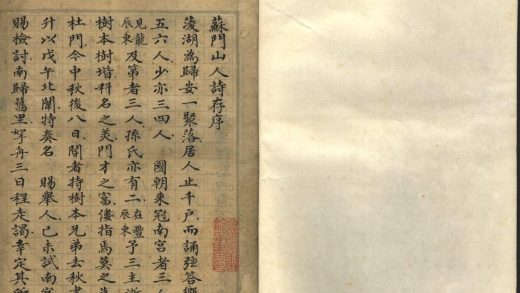 蘇門山人詩存序
菱湖為歸安一聚落居人止千户而誦弦答
五六人少亦三四人 國朝来冠南宮者三人
見龍辰東及第者三人孫氏亦有二在豐辰東予三主
樹本樹堦科名之美門才之富僂指焉莫之
杜門今中秋後八日閽者持樹本兄弟去秋
升以戊午北闈特奏名 賜舉人己未試南
賜檢討南歸舊里拏舟三日程走謁幸定其